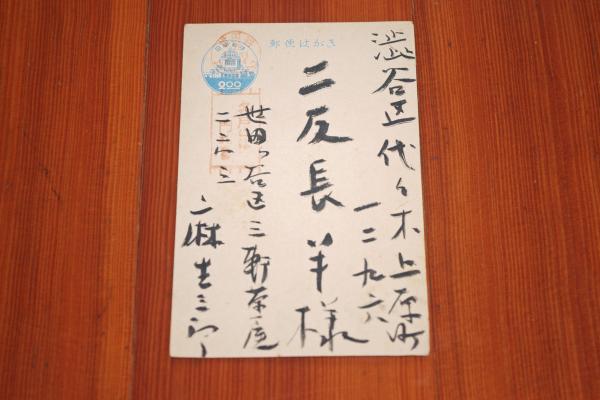 郵便はがき
200
渋谷区代々木上原町
一二九六
二反長半様
世田ヶ谷区三軒茶屋
二三八三
麻生三郎